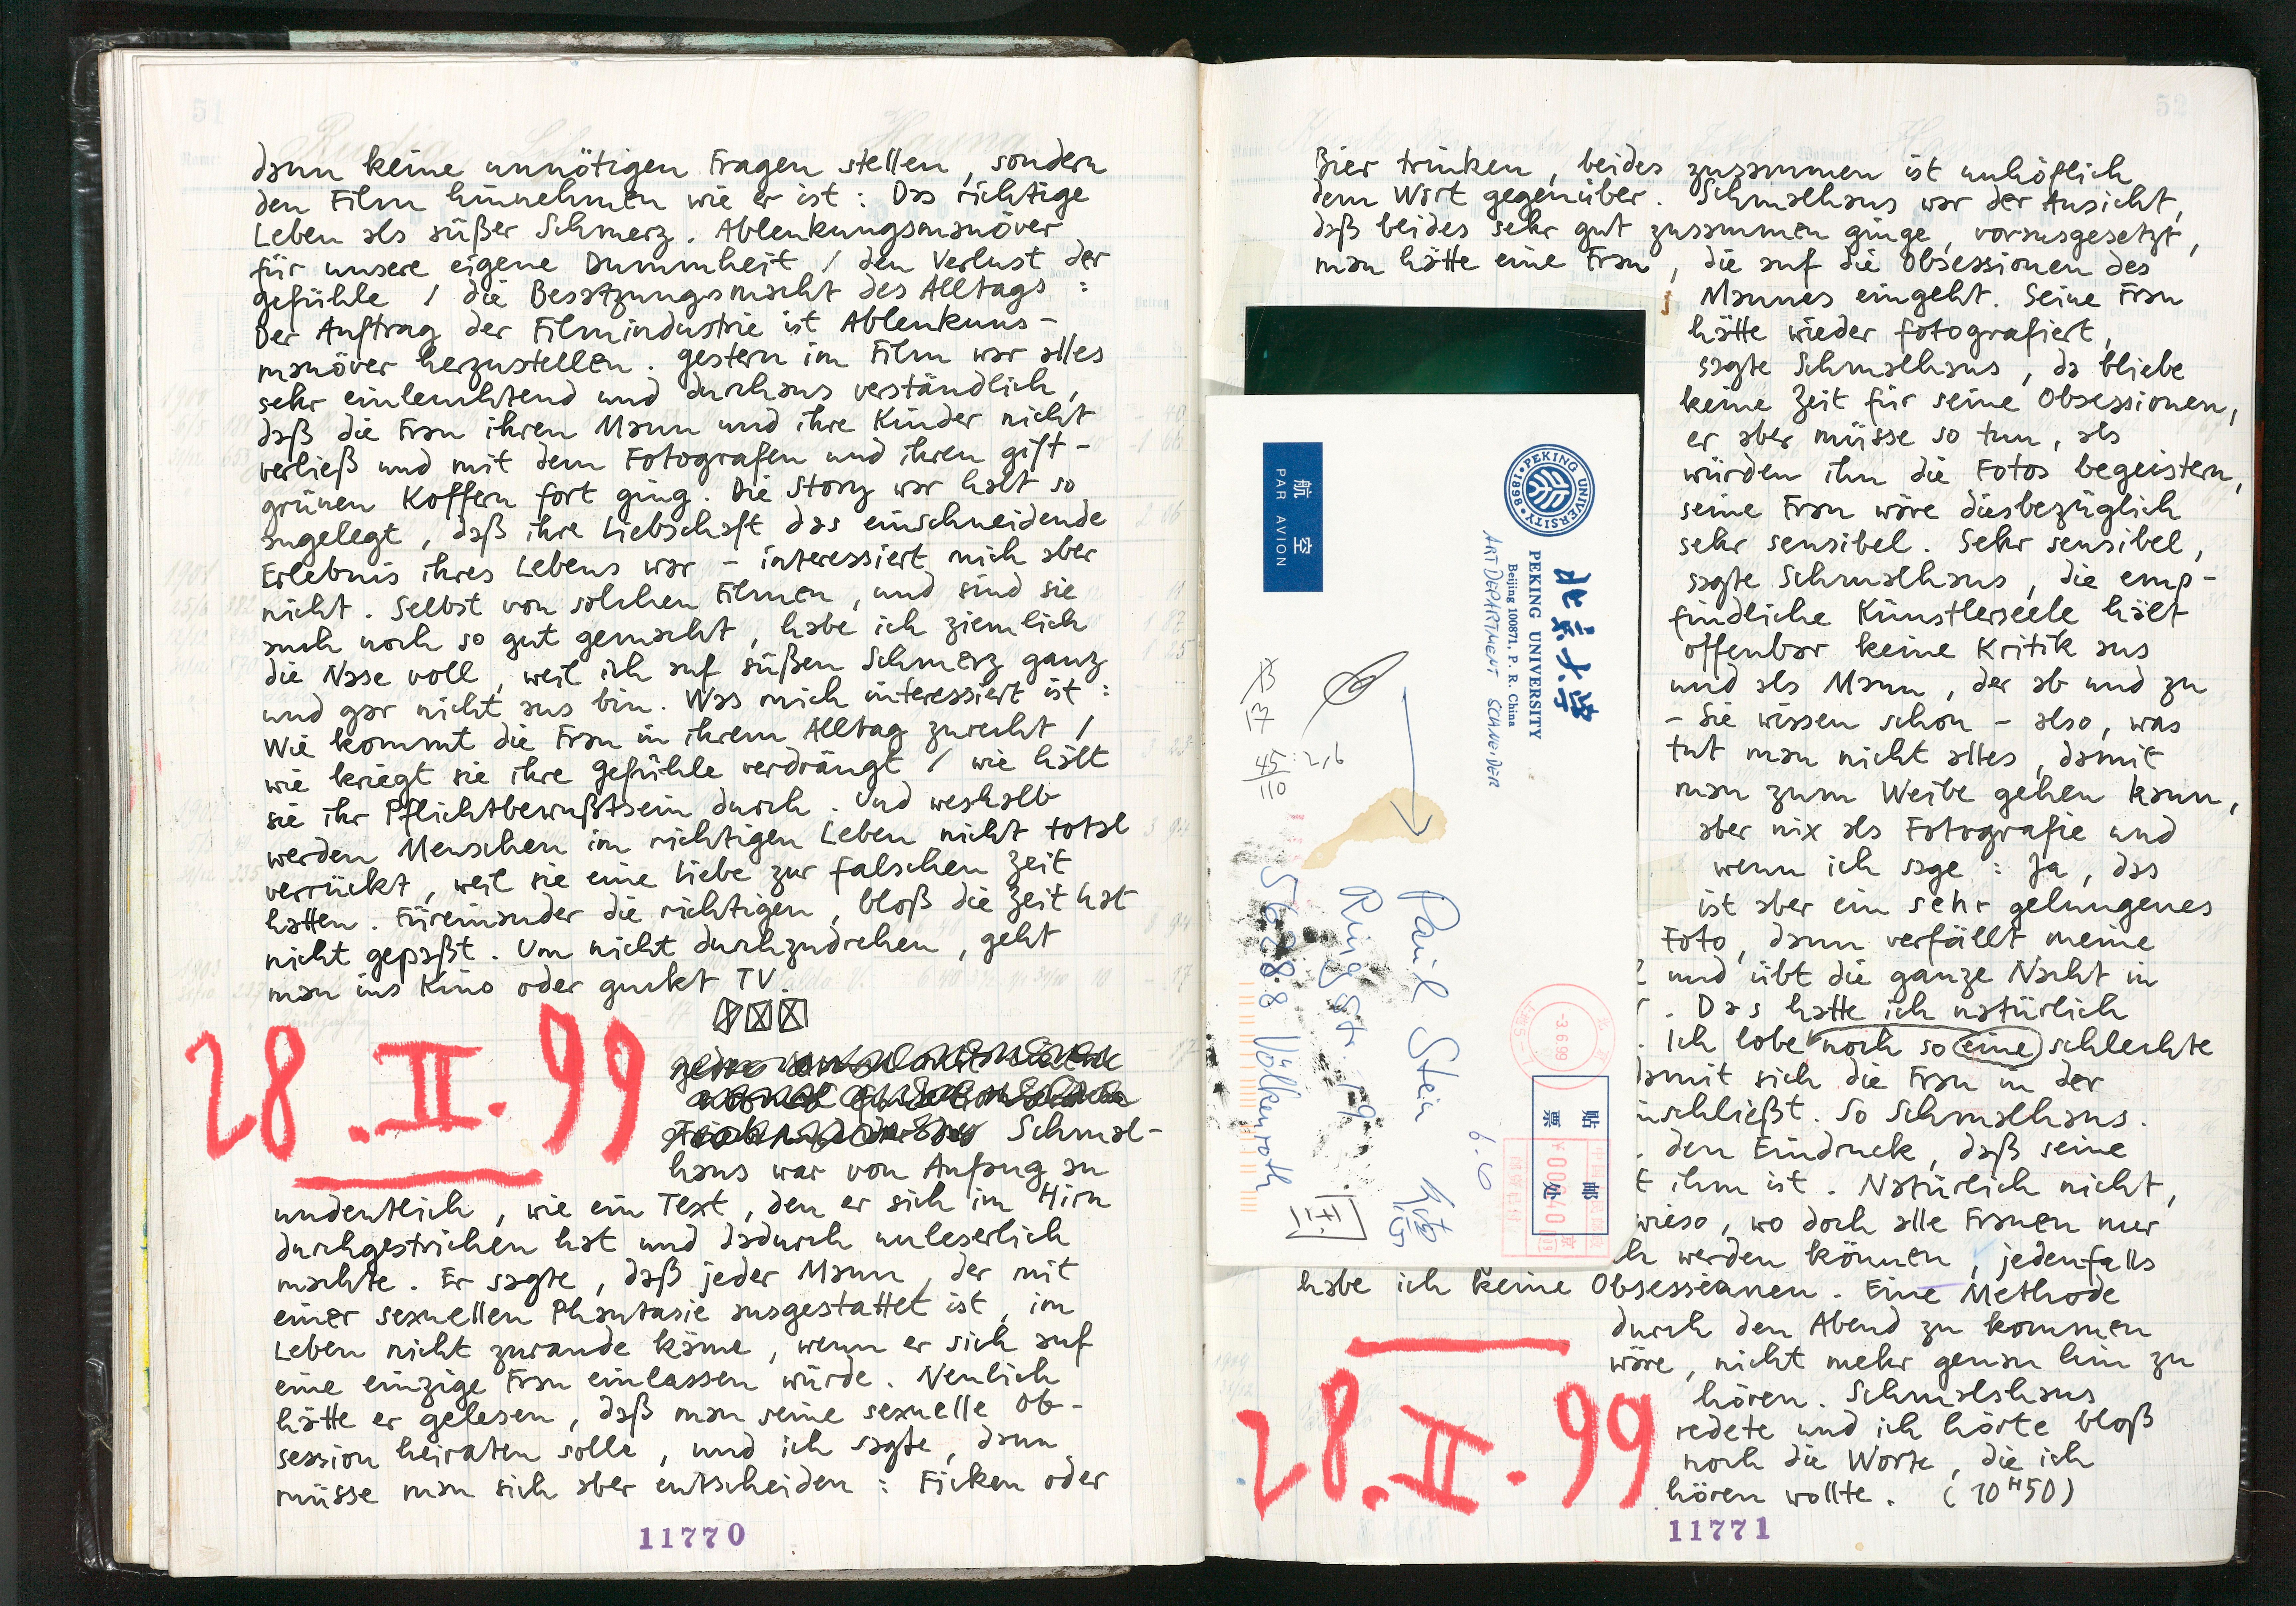 51
dann keine unnötigen Fragen stellen, sondern
den Film hinnehmen wie er ist: Das richtige
Leben als süßer Schmerz. Ablenkungsmanöver
für unsere eigene Dummheit / den Verlust der
Gefühle / die Besatzungsmacht des Alltags:
Der Auftrag der Filmindustrie ist Ablenkuns-
manöver herzustellen. Gestern im Film war alles
sehr einleuchtend und durchaus verständlich,
daß die Frau ihren Mann und ihre Kinder nicht
verließ und mit dem Fotografen und ihren gift-
grünen Koffern fort ging. Die Story war halt so
angelegt, daß ihre Liebschaft das einschneidende
Erlebnis ihres Lebens war – interessiert mich aber
nicht. Selbst von solchen Filmen, und sind sie
auch noch so gut gemacht, habe ich ziemlich
die Nase voll, weil ich auf süßen Schmerz ganz
und gar nicht aus bin. Was mich interessiert ist:
Wie kommt die Frau in ihrem Alltag zurecht /
wie kriegt sie ihre Gefühle verdrängt / wie hält
sie ihr Pflichtbewußtsein durch. Und weshalb
werden Menschen im richtigen Leben nicht total
verrückt, weil sie eine Liebe zur falschen Zeit
hatten. Füreinander die richtigen, bloß die Zeit hat
nicht gepaßt. Um nicht durchzudrehen, geht
man ins Kino oder guckt TV.
28.II.99
Schmal-
haus war von Anfang an
undeutlich, wie ein Text, den er sich im Hirn
durchgestrichen hat und dadurch unleserlich
machte. Er sagte, daß jeder Mann, der mit
einer sexuellen Phantasie ausgestattet ist, im
Leben nicht zurande käme, wenn er sich auf
eine einzige Frau einlassen würde. Neulich
hätte er gelesen, daß man seine sexuelle Ob-
session heiraten solle, und ich sagte, dann
müsse man sich aber entscheiden: Ficken oder
11770
52
Bier trinken, beides zusammen ist unhöflich
dem Wort gegenüber. Schmalhaus war der Ansicht,
daß beides sehr gut zusammen ginge, vorausgesetzt,
man hätte eine Frau, die auf die Obsessionen des
Mannes eingeht. Seine Frau
hätte wieder fotografiert,
sagte Schmalhaus, da bliebe
keine Zeit für seine Obsessionen,
er aber müsse so tun, als
würden ihn die Fotos begeistern,
seine Frau wäre diesbezüglich
sehr sensibel. Sehr sensibel,
sagte Schmalhaus, die emp-
findliche Künstlerseele hält
offenbar keine Kritik aus
und als Mann, der ab und zu
– Sie wissen schon – also, was
tut man nicht alles, damit
man zum Weibe gehen kann,
aber nix als Fotografie und
wenn ich sage: Ja, das
ist aber ein sehr gelungenes
Foto, dann verfällt meine
und übt die ganze Nacht in
. Das hatte ich natürlich
. Ich lobe noch so eine schlechte
damit sich die Frau in der
nschließt. So Schmalhaus.
. den Eindruck, daß seine
t ihm ist. Natürlich nicht,
wieso, wo doch alle Frauen nur
h werden können, jedenfalls
habe ich keine Obsessionen. Eine Methode
durch den Abend zu kommen
wäre, nicht mehr genau hin zu
hören. Schmalshaus
redete und ich hörte bloß
noch die Worte, die ich
hören wollte. (10H50)
28.II.99
11771
PEKING UNIVERSITY
1898
北京大学
PEKING UNIVERSITY
Beijing 100871, P. R. China
ART DEPARTMENT SCHNEIDER
航空
PAR AVION
17
45
110
2,6
Paul Stein
Ringstr. 19
56288 Völkenroth
6.6
-3.6.99
贴邮
票处